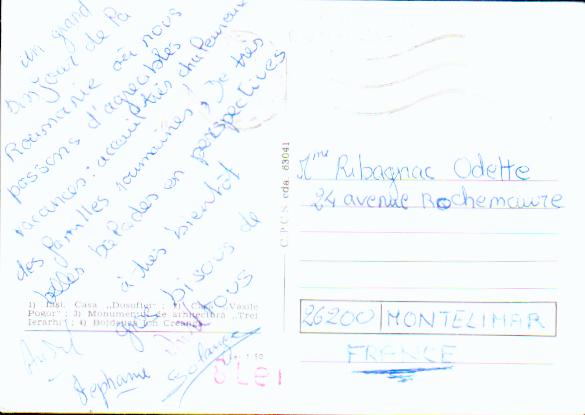 un grand
bonjour de la
Roumanie où nous
passons d'agréables
vacances: accueil très chaleureux
des familles roumaines, de très
belles balades en perspectives
à très bientôt
gros bisous de
tous
Stephanie
Solange
1) Casa „Dosoftei"; 2) Casa „Vasile
Pogor"; 3) Monumentul de arhitectură „Trei
Ierarhi"; 4) Bojdeuca Ion Creangă
8 Lei
C.P.C.S. cda 63041
Mme Ribagnac Odette
24 avenue Rochemaure
26200 MONTELIMAR
FRANCE